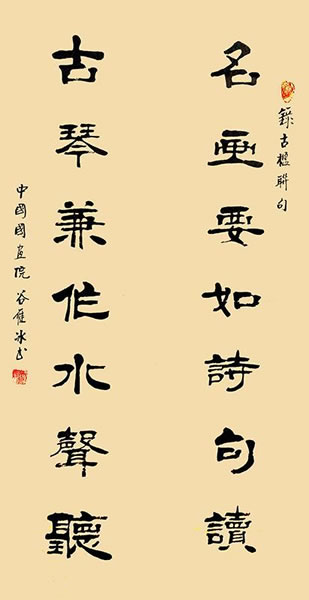 錄古楹聯句
名画要如詩句讀
古琴兼作水聲聽
中國國畫院 谷雁冰书